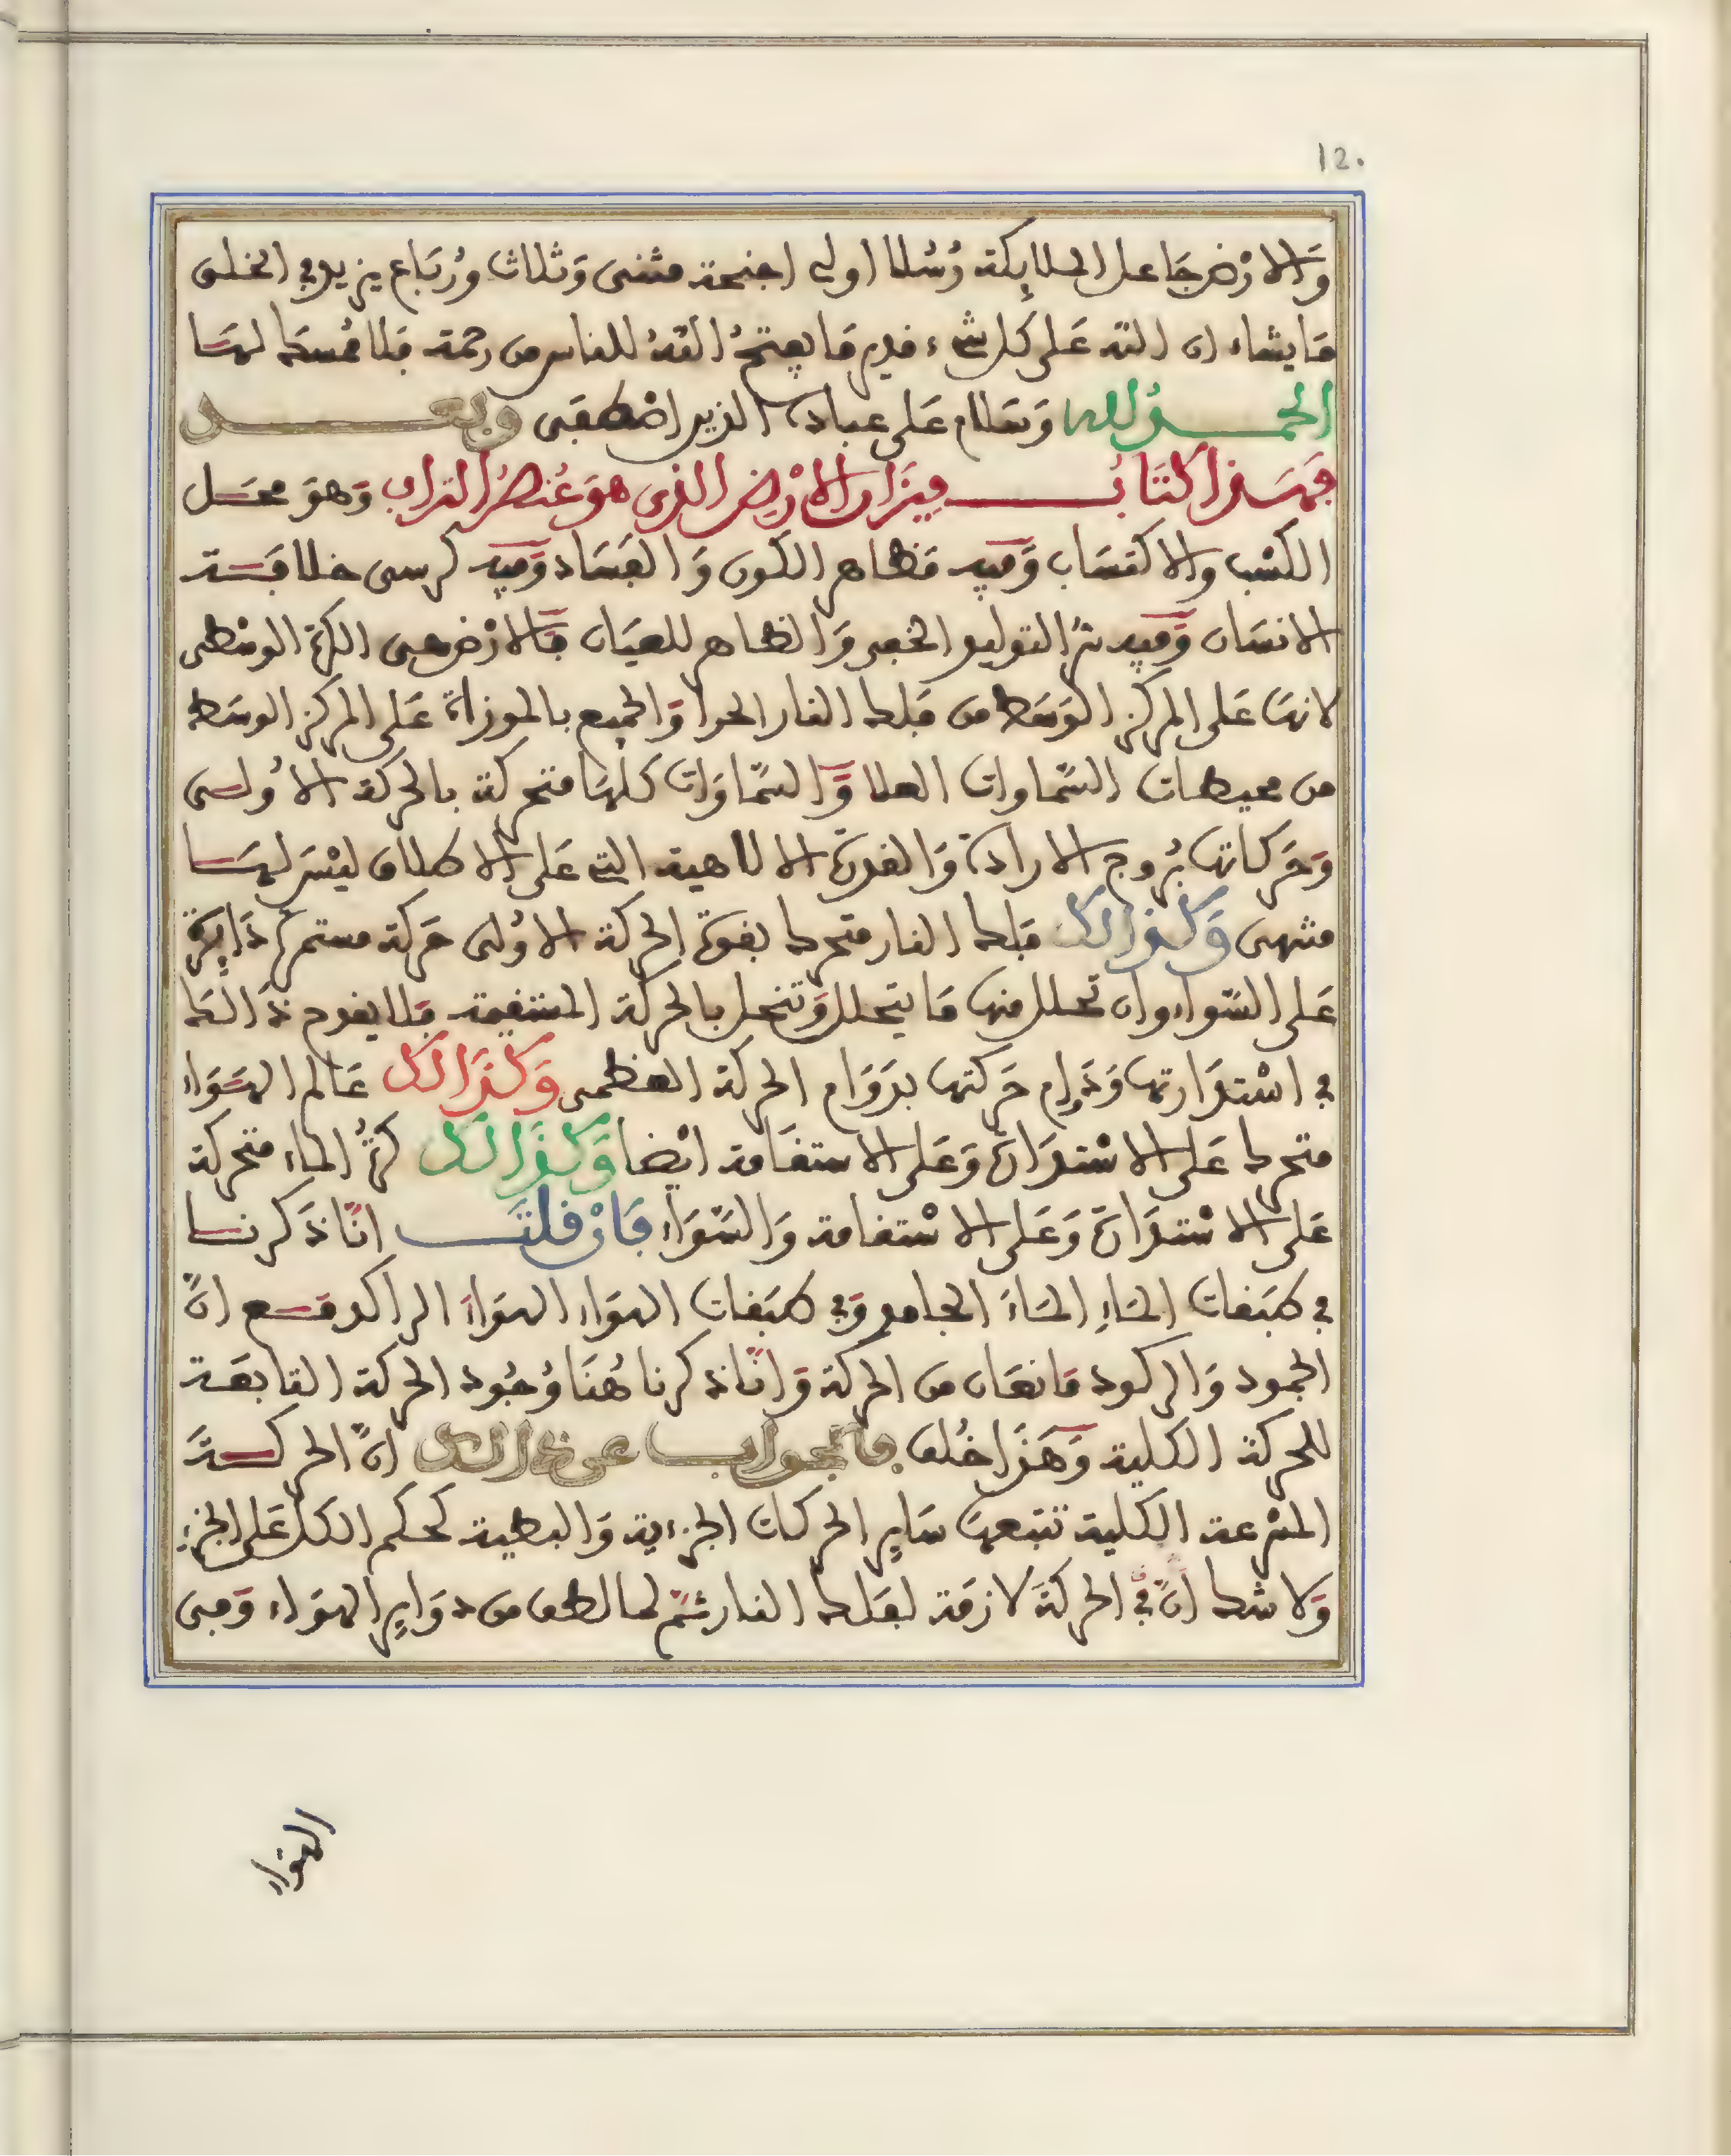 12.
وَالارْض جَاعل الملائِكة رُسُلا اولى اجنحة مثنى وَثلاث وُربَاع يزيد في الخلق
مَا يشاء ان اللّه عَلى كل شىء قدير مَا يفتحُ اللّهُ للناس من رحمة فَلا ممسك لهَا
الحمــدُ لله وَسَلام عَلى عباده الذين اصْطفَى وبعــــد
فهَــذا كتَابُ مِيزَان الارْض الذى هوَ عُنصُر التراب وَهوَ محَـل
الكسْب والاكتسَاب وَفيه مَظاهر الكون وَالفسَاد وَفيه كرسى خلافَــة
الانسَان وَفيه سرُّ التوليد الخفى وَالظاهر للعيَان فَالارْض هى الكرة الوسْطى
لانهَا عَلى المركز الوَسَط من فلك النار الحرا وَالجميع بالموزاة عَلى المركز الوسَط
من محيطات السَّماوات العلا وَالسَّماوَات كلهَا متحركة بالحركة الأُولـى
وَحَركاتها بُروج الارادة وَالقدرة الالاهية التى عَلى الاطلاق ليْسَ لهَــا
منتهى وَكذالك فلك النار متحرك بقوة الحركة الاوُلى حَركة مستمرة دَائِرة
عَلى السَّواء وان تحلل منها مَا يتحلل وَتنحل بالحركة المستقيمة فَلا يقدح ذَالكَ
في اسْتدَارتها وَدَوام حَركتها بدَوَام الحركة العظمى وَكذَالك عَالم الهَوَاء
متحرك عَلى الاسْتدَارة وَعَلى الاستقَامة ايْضا وَكذَالك كرةُ الماء متحركة
عَلى الاسْتدَارة وَعَلى الاسْتقامة وَالسَّوَاء فَانْ قلتَ انّا ذَكرنــا
في طبَقات المَاءِ المَاءَ الجامد وَفي طبَقات الهوَاء الهوَاءَ الراكد مَــع انَّ
الجمود وَالركود مَانعَان من الحركة وَانّا ذكرنا هُنَا وُجُود الحركة التابعَــة
للحركة الكلية وَهَذَا خُلف فالجواب عن ذالك انَّ الحركــةَ
المسْرعة الكلية تتبعهَا سَايِر الحركات الجزءية وَالبطية كحكم الكل عَلى الجزء
وَلا شك انَّ في الحركةَ لازمَة لفَلك النار ثمّ لما لطف من دوَايِر الهوَاء وَهى
الهوَاء